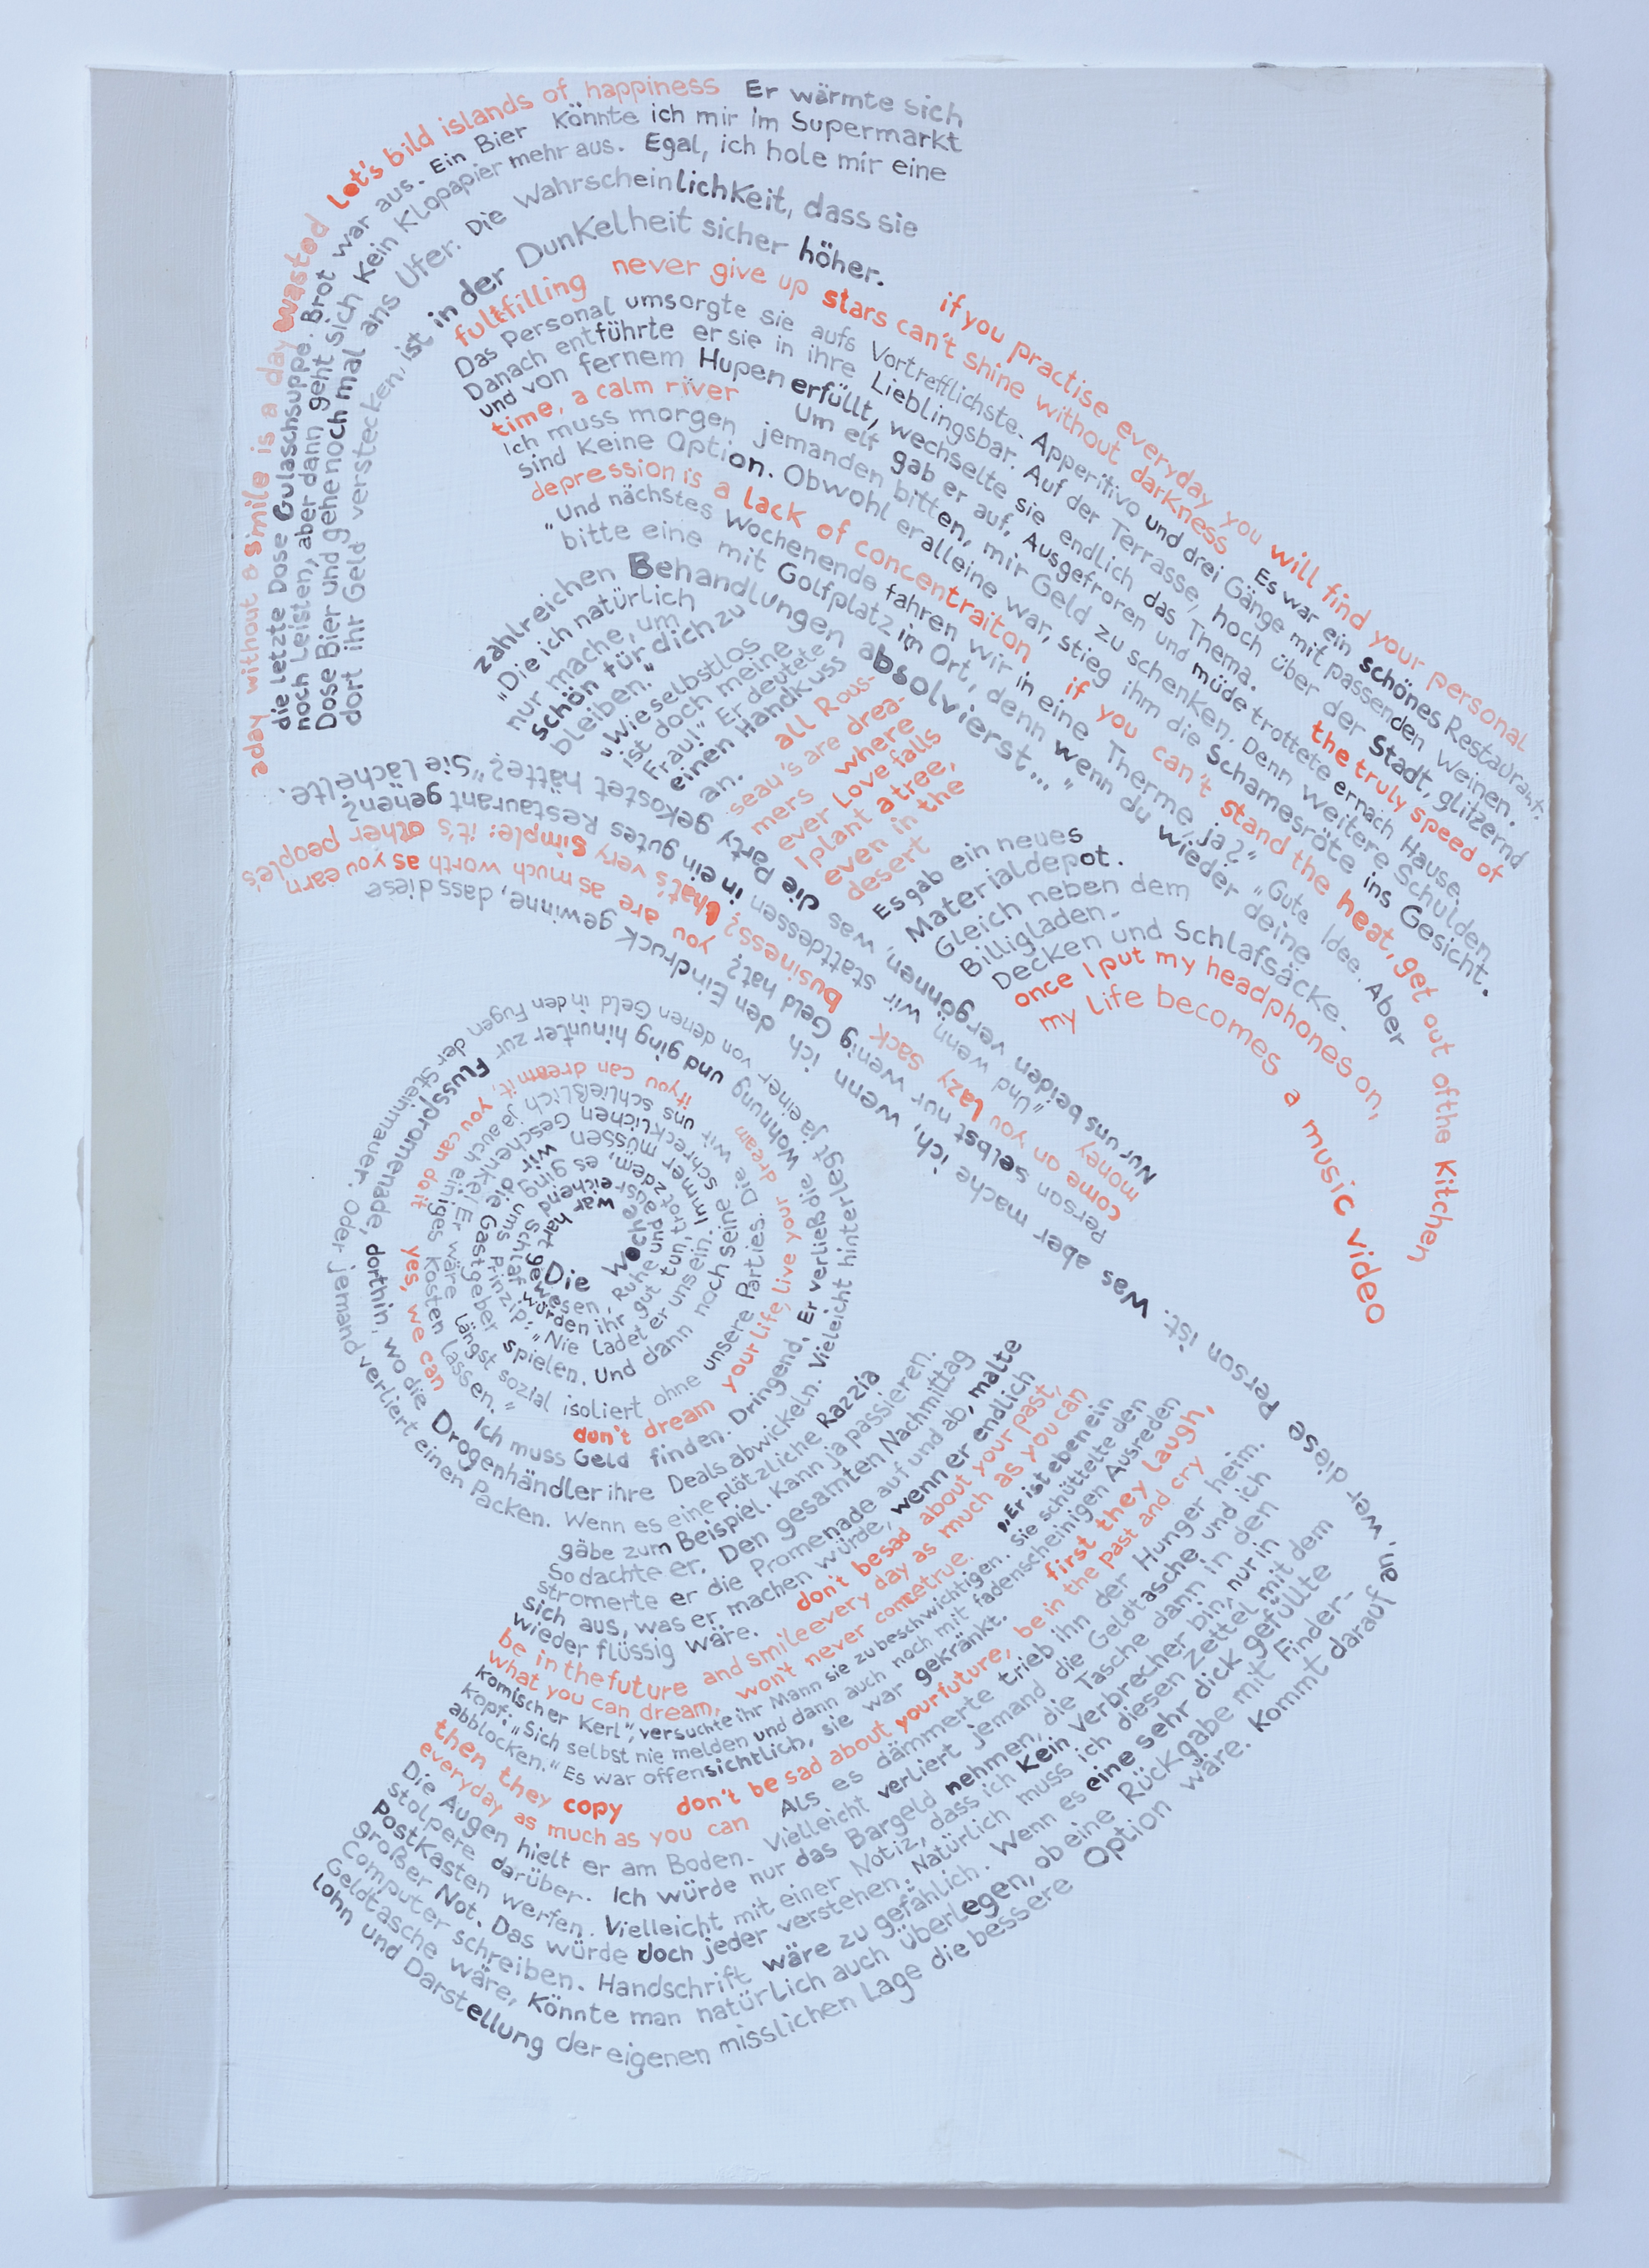 a day without a smile is a day wasted Let's bild islands of happiness Er wärmte sich
die letzte Dose Gulaschsuppe. Brot war aus. Ein Bier Könnte ich mir im Supermarkt
noch Leisten, aber dann geht sich Kein Klopapier mehr aus. Egal, ich hole mir eine
Dose Bier und gehe noch mal ans Ufer. Die Wahrscheinlichkeit, dass sie
dort ihr Geld verstecken, ist in der Dunkelheit sicher höher.
if you practise everyday you will find your personal
fultfilling never give up stars can't shine without darkness Es war ein schönes Restaurant.
Das Personal umsorgte sie aufs Vortrefflichste. Apperitivo und drei Gänge mit passenden Weinen.
Danach entführte er sie in ihre Lieblingsbar. Auf der Terrasse, hoch über der Stadt, glitzernd
und von fernem Hupen erfüllt, wechselte sie endlich das Thema. the truly speed of
time, a calm river Um elf gab er auf. Ausgefroren und müde trottete er nach Hause.
Ich muss morgen jemanden bitten, mir Geld zu schenken. Denn weitere Schulden
sind Keine Option. Obwohl er alleine war, stieg ihm die Schamesröte ins Gesicht.
depression is a lack of concentraiton if you can't stand the heat, get out of the Kitchen
"Und nächstes Wochenende fahren wir in eine Therme, ja?" "Gute Idee. Aber
bitte eine mit Golfplatz im Ort, denn wenn du wieder deine
zahlreichen Behandlungen absolvierst..."
"Die ich natürlich
nur mache, um
schön für dich zu
bleiben."
"Wie selbstlos
ist doch meine
Frau!" Er deutete
einen Handkuss
an.
all Rous-
seau's are drea-
mers where
ever Love falls
I plant a tree,
even in the
desert
Es gab ein neues
Materialdepot.
Gleich neben dem
Billigladen.
Decken und Schlafsäcke.
once I put my headphones on,
my life becomes a music video
Nur uns beiden vergönnen, was die Party gekostet hätte?" Sie lächelte.
"Und wenn wir stattdessen in ein gutes Restaurant gehen?
money
come on you lazy sack
business? that's very simple: it's other people's
you are as much worth as you earn
Person selbst nur wenig Geld hat?
Was aber mache ich, wenn ich den Eindruck gewinne, dass diese
Die Woche war hart gewesen, Ruhe und ausreichend Schlaf würden ihr gut tun, trotzdem, es ging ums Prinzip: "Nie ladet er uns ein. Immer müssen wir die Gastgeber spielen. Und dann noch seine schrecklichen Geschenke! Er wäre längst sozial isoliert ohne unsere Parties. Die wir uns schließlich ja auch einiges Kosten lassen."
if you can dream it, you can do it yes, we can
don't dream your life, live your dream
Ich muss Geld finden. Dringend. Er verließ die Wohnung und ging hinunter zur
Flusspromenade, dorthin, wo die Drogenhändler ihre Deals abwickeln. Vieleicht hinterlegt ja einer von denen Geld in den Fugen
der Steinmauer. Oder jemand verliert einen Packen. Wenn es eine plötzliche Razzia
gäbe zum Beispiel. Kann ja passieren.
So dachte er. Den gesamten Nachmittag
stromerte er die Promenade auf und ab, malte
sich aus, was er machen würde, wenn er endlich
wieder flüssig wäre. don't be sad about your past,
be in the future and smile every day as much as you can
what you can dream, won't never come true. "Er ist eben ein
komischer Kerl", versuchte ihr Mann sie zu beschwichtigen. Sie schüttelte den
Kopf: "Sich selbst nie melden und dann auch noch mit fadenscheinigen Ausreden
abblocken." Es war offensichtlich, sie war gekränkt. first they laugh,
then they copy don't be sad about your future, be in the past and cry
everyday as much as you can Als es dämmerte trieb ihn der Hunger heim.
Die Augen hielt er am Boden. Vielleicht verliert jemand die Geldtasche und ich
stolpere darüber. Ich würde nur das Bargeld nehmen, die Tasche dann in den
Postkasten werfen. Vielleicht mit einer Notiz, dass ich Kein Verbrecher bin, nur in
großer Not. Das würde doch jeder verstehen. Natürlich muss ich diesen Zettel mit dem
Computer schreiben. Handschrift wäre zu gefählich. Wenn es eine sehr dick gefüllte
Geldtasche wäre, Könnte man natürlich auch überlegen, ob eine Rückgabe mit Finder-
lohn und Darstellung der eigenen misslichen Lage die bessere Option wäre. Kommt darauf
an, wer diese Person ist.